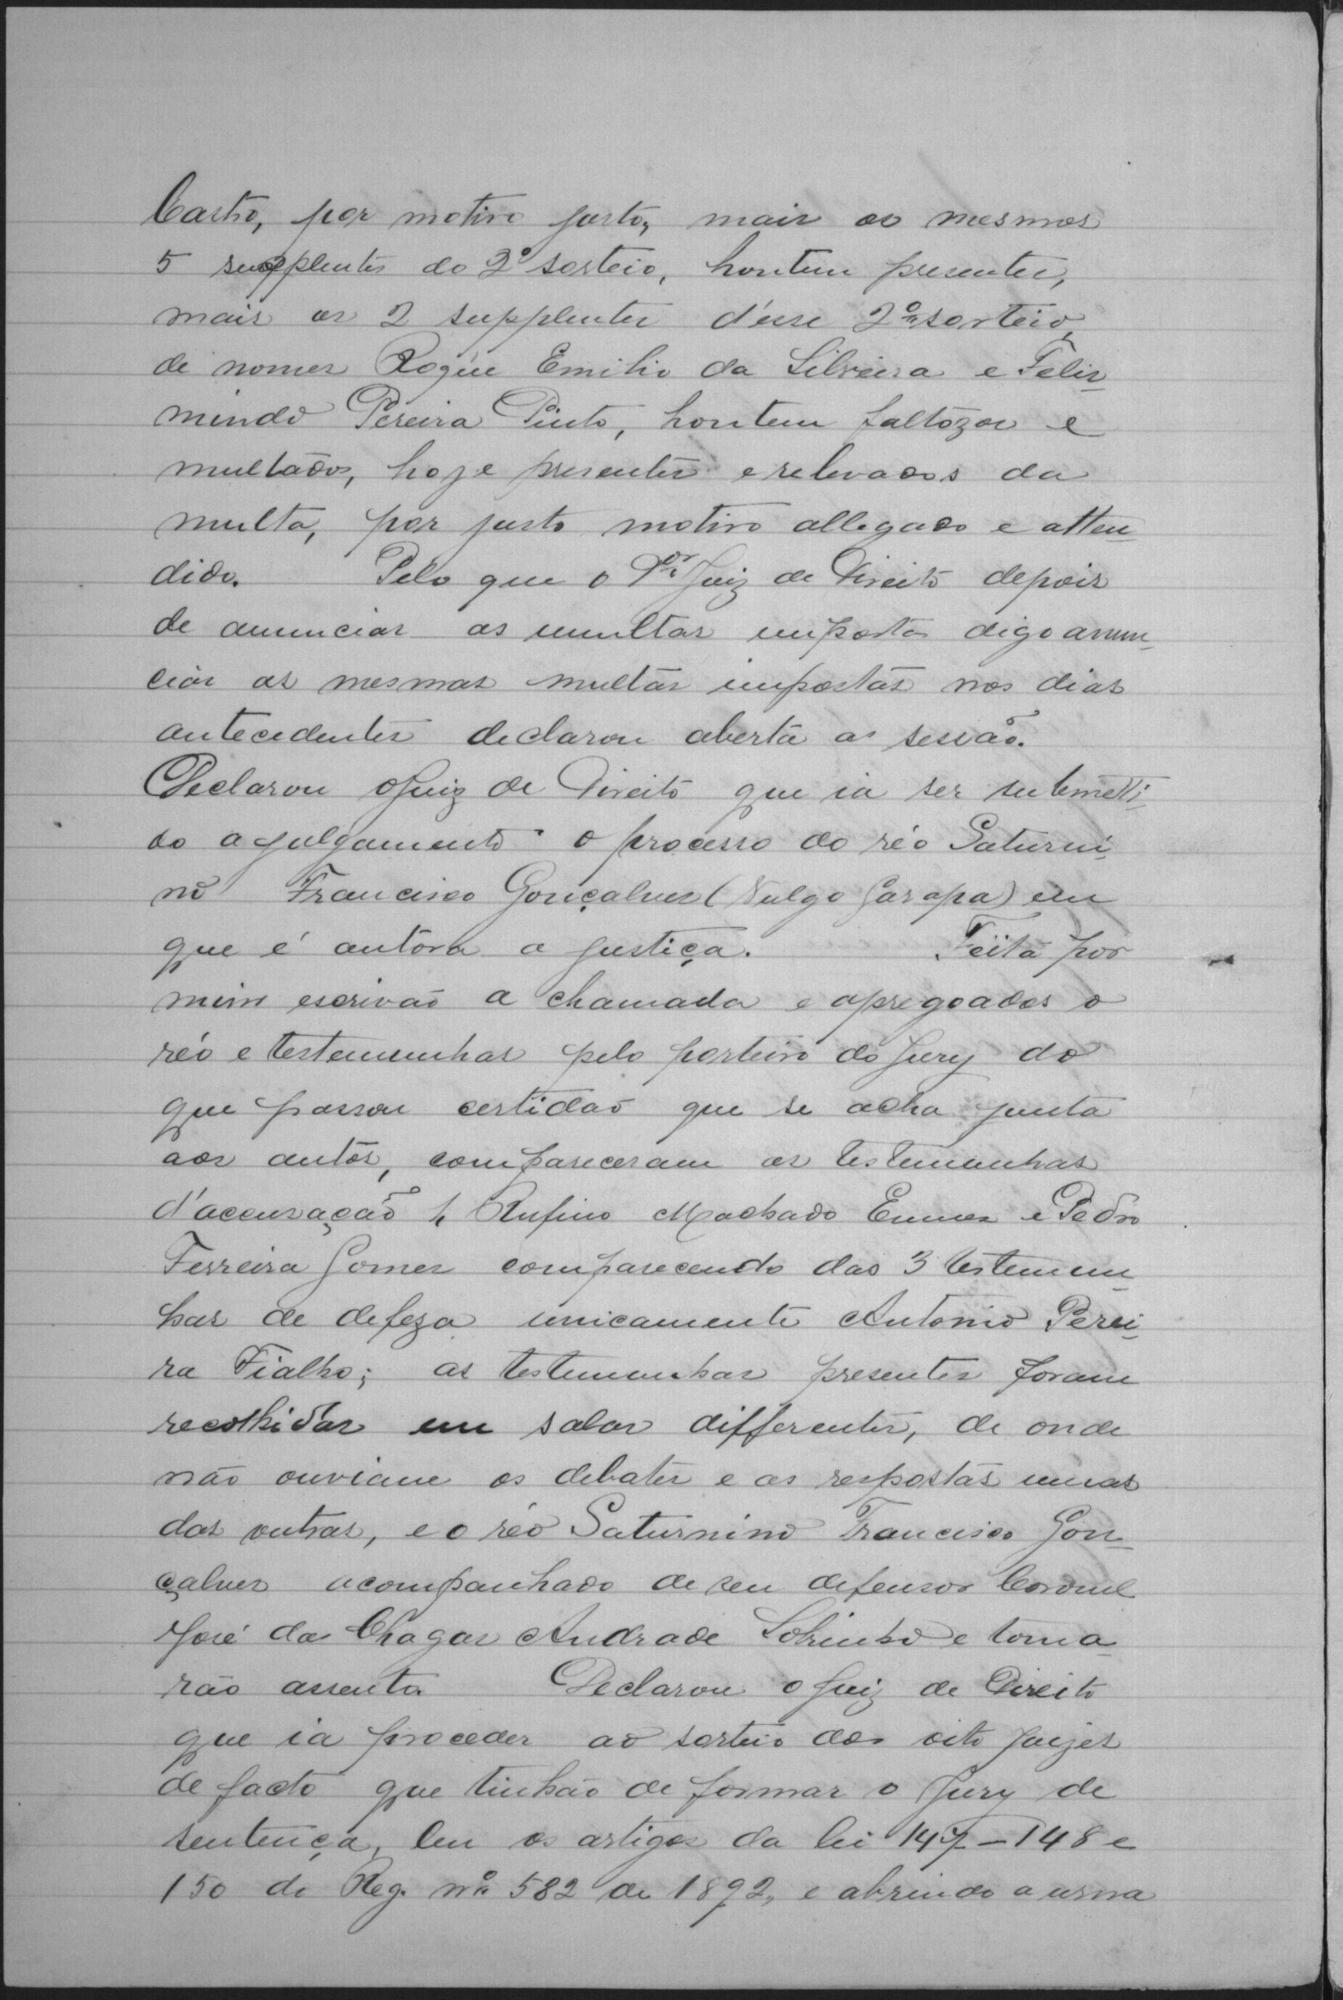 Castro, por motivo justo, mais os mesmos
5 supplentes do 2º sorteio, hontem presentes,
mais os 2 supplentes d'esse 2º sorteio,
de nomes Roque Emilio da Silveira e Felis-
mindo Pereira Pinto, hontem faltozos e
multados, hoje presentes e relevados da
multa, por justo motivo allegado e atten-
dido. Pelo que o Dor Juiz de Direito depois
de anunciar as multas imposta digo anun-
ciar as mesmas multas impostas nos dias
antecedentes declarou aberta a sessão.
Declarou o Juiz de Direito que ia ser submetti-
do a julgamento o processo do réo Saturni-
no Francisco Gonçalves (Vulgo Garapa) em
que é autora a justiça. Feita por
mim escrivão a chamada e apregoados o
réo e testemunhas pelo porteiro do Jury do
que passou certidão que se acha junta
aos autos, compareceram as testemunhas
d'accusação Rufino Machado Ennes e Pedro
Ferreira Gomes comparecendo das 3 testemun-
has de defeza unicamente Antonio Perei-
ra Fialho; as testemunhas presentes foram
recolhidas em salas differentes, de onde
não ouviam os debates e as respostas umas
das outras, e o réo Saturnino Francisco Gon-
çalves acompanhado de seu defensor Coronel
José da Chagas Andrade Sobrinho e toma-
rão assento. Declarou o Juiz de Direito
que ia proceder ao sorteio dos oito juizes
de facto que tinhão de formar o Jury de
sentença, leu os artigos da lei 147-148 e
150 do Reg. nº 582 de 1892, e abrindo a urna